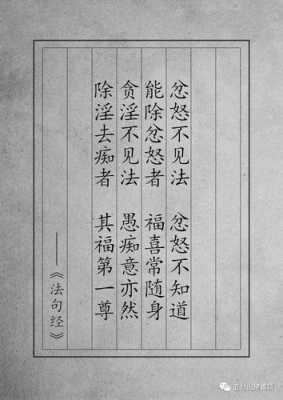 忿怒不见法 忿怒不知道
能除忿怒者 福喜常随身
贪淫不见法 愚痴意亦然
除淫去痴者 其福第一尊
——《法句经》